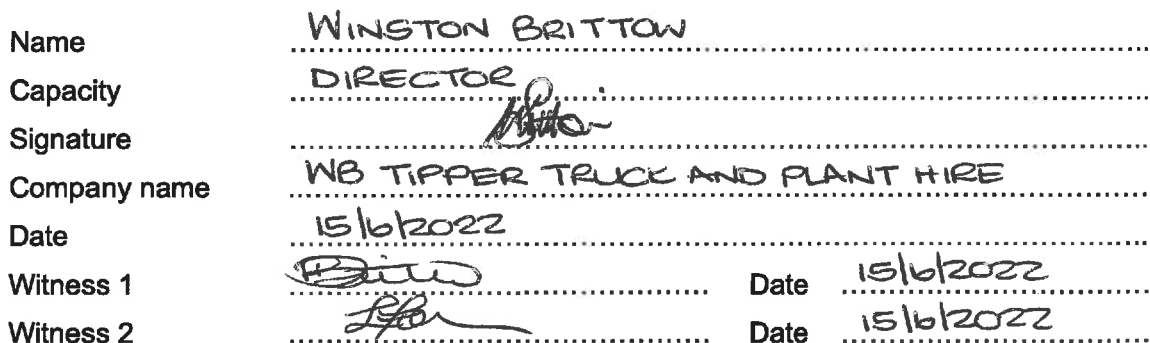 Name WINSTON BRITTOW
Capacity DIRECTOR
Signature
Company name WB TIPPER TRUCK AND PLANT HIRE
Date 15/6/2022
Witness 1 Date 15/6/2022
Witness 2 Date 15/6/2022